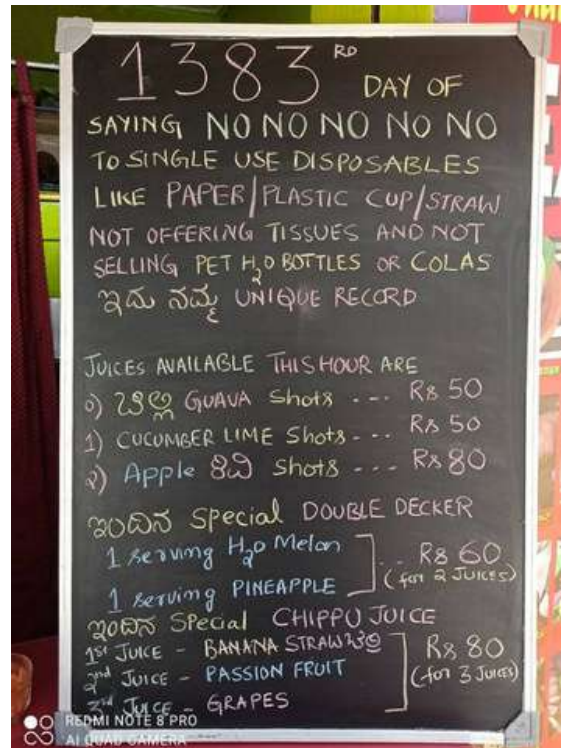 1383RD DAY OF
SAYING NO NO NO NO NO
TO SINGLE USE DISPOSABLES
LIKE PAPER/PLASTIC CUP/STRAW
NOT OFFERING TISSUES AND NOT
SELLING PET H2O BOTTLES OR COLAS
ಇದು ನಮ್ಮ UNIQUE RECORD
JUICES AVAILABLE THIS HOUR ARE
೦) ಚಿಲ್ಲಿ GUAVA Shots --- Rs 50
1) CUCUMBER LIME Shots --- Rs 50
೩) Apple ಕಿವಿ Shots --- Rs 80
ಇಂದಿನ Special DOUBLE DECKER
1 serving H2O Melon
1 serving PINEAPPLE
... Rs 60
(for 2 JUICES)
ಇಂದಿನ SPecial CHIPPU JUICE
1st JUICE - BANANA STRAW
2nd JUICE - PASSION FRUIT
3rd JUICE - GRAPES
Rs 80
(for 3 JUICES)
REDMI NOTE 8 PRO
AI QUAD CAMERA